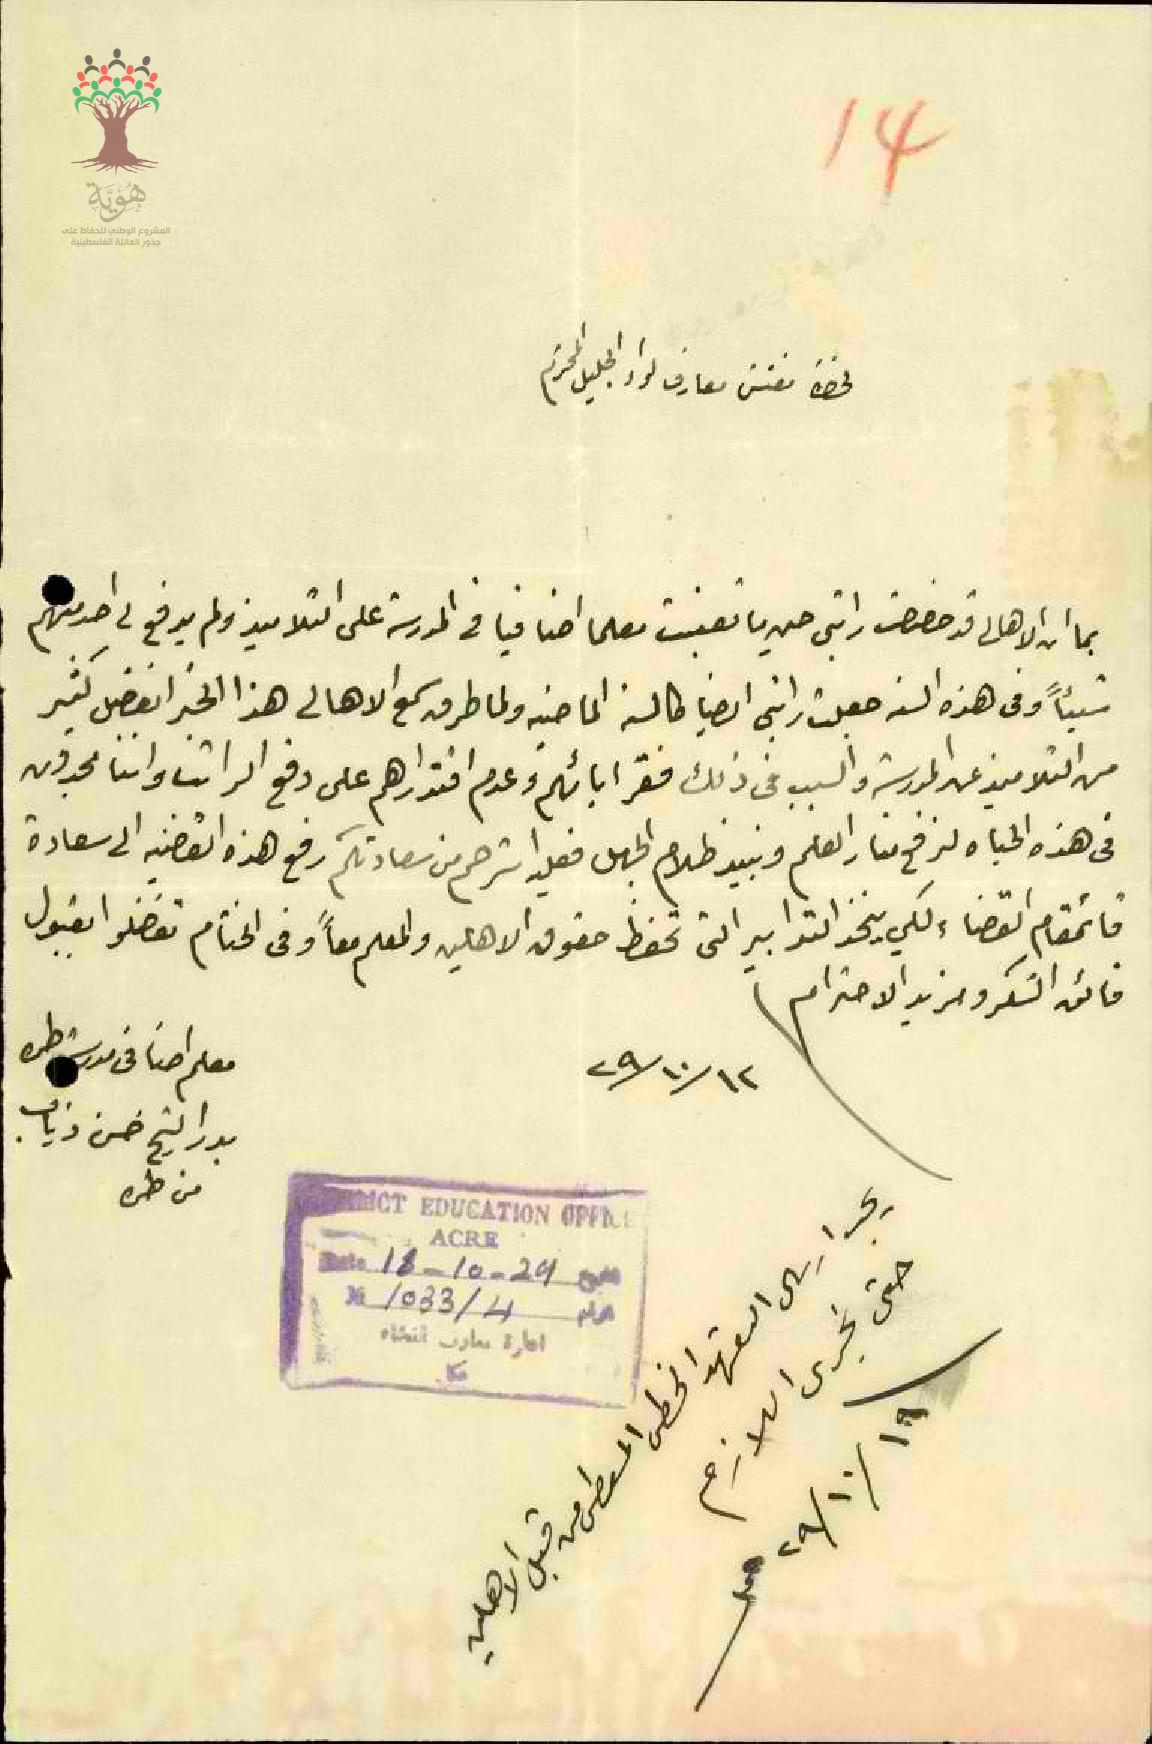 14
هُوِيَّة
المشروع الوطني للحفاظ على
جذور العائلة الفلسطينية
لحضرة مفتش معارف لواء الجليل المحترم
بما ان الاهالي قد خصصت راتبي حين ما تعينت معلما اضافيا في المدرسة على التلاميذ ولم يدفع لي احد منهم
شيئاً وفي هذه السنه جعلت راتبي ايضا كالسنه الماضيه ولما طرق سمع الاهالي هذا الخبر انفصل كثير
من التلاميذ عن المدرسة والسبب في ذلك فقر ابائهم وعدم اقتدارهم على دفع الراتب واننا مجدون
في هذه الحياه لنرفع منار العلم ونبيد ظلام الجهل فعليه استرحم من سعادتكم رفع هذه القضيه الى سعادة
قائمقام القضاء لكي يتخذ التدابير التي تحفظ حقوق الاهلين والمعلم معاً وفي الختام تفضلوا بقبول
فائق الشكر ومزيد الاحترام
١٢/١٠/٢٩
معلم اضافي في مدرسة
بدر الشيخ حسن ذياب
من
DISTRICT EDUCATION OFFICE
ACRE
Date 18-10-29 التاريخ
№ 1033/4
ادارة معارف قضاء
عكا
التعهد الخطي المعطى من قبل الاهلين
حتى نجري اللازم
١٩/١٠/٢٩